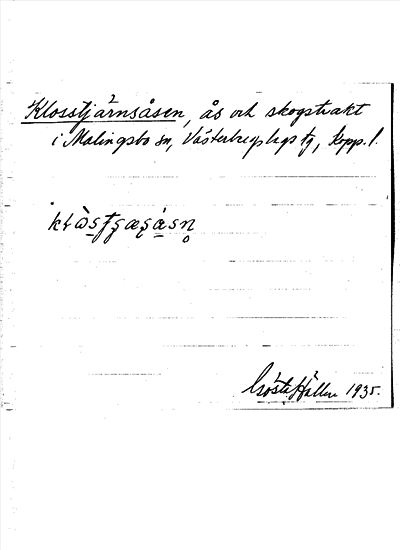 Klosstjärnsåsen, ås och skogstrakt
i Malingsbo sn, Västerbergslags tg, Kopp. l.
Gösta Hallin 1935.